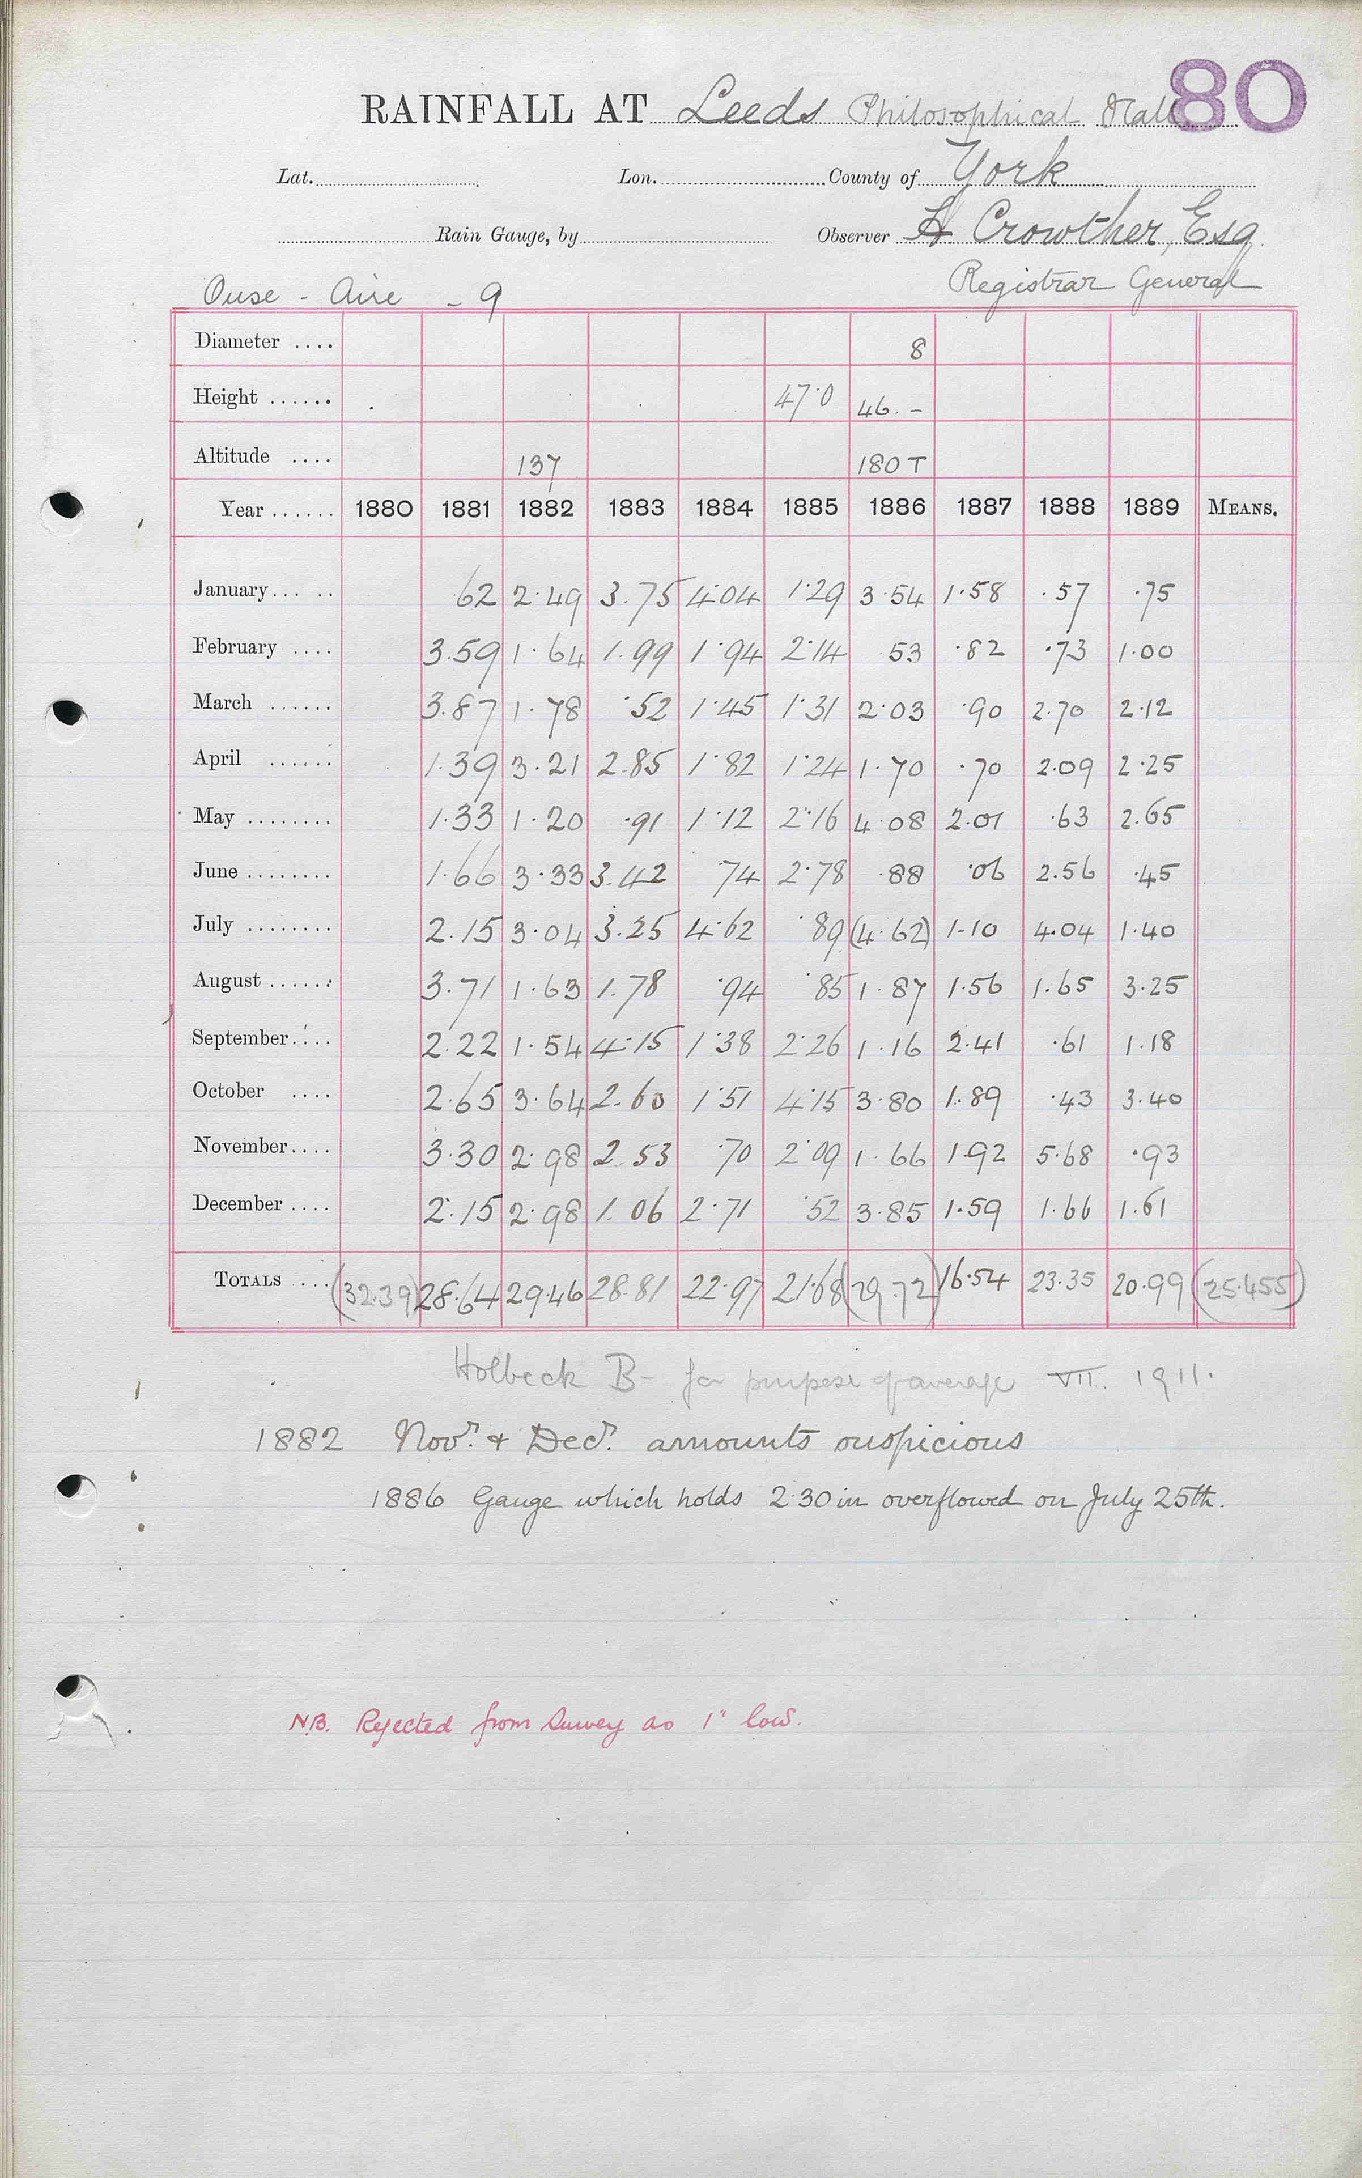 80
RAINFALL AT Leeds Philosophical Hall
Lat. Lon. County of York
Rain Gauge, by Observer H Crowther, Esq.
Ouse - Aire - 9 Registrar General
Diameter .... 8
Height ...... 47·0 46.-
Altitude .... 137 180 T
Year ...... 1880 1881 1882 1883 1884 1885 1886 1887 1888 1889 MEANS.
January... .. 62 2·49 3.75 4·04 1·29 3·54 1·58 ·57 ·75
February .... 3.59 1·64 1.99 1·94 2·14 53 ·82 ·73 1·00
March ...... 3.87 1·78 ·52 1·45 1·31 2·03 ·90 2·70 2·12
April ...... 1.39 3·21 2.85 1·82 1·24 1·70 ·70 2·09 2·25
May ........ 1·33 1·20 ·91 1·12 2·16 4 08 2·01 ·63 2.65
June ........ 1·66 3·33 3.42 74 2·78 ·88 ·06 2.56 ·45
July ........ 2.15 3·04 3.25 4·62 ·89 (4·62) 1·10 4·04 1·40
August ...... 3.71 1·63 1.78 ·94 ·85 1·87 1·56 1.65 3·25
September.... 2.22 1·54 4·15 1·38 2·26 1·16 2·41 ·61 1·18
October .... 2·65 3·64 2.60 1·51 4·15 3·80 1·89 ·43 3·40
November.... 3·30 2·98 2.53 ·70 2·09 1·66 1·92 5·68 ·93
December .... 2·15 2·98 1.06 2·71 ·52 3·85 1·59 1·66 1.61
TOTALS .... (32.39) 28.64 29.46 28.81 22.97 21.68 (29.72) 16.54 23.35 20.99 (25.455)
Holbeck B- for purpose of average VII. 1911.
1882 Novr. & Decr. amounts suspicious
1886 Gauge which holds 2·30 in overflowed on July 25th.
N.B. Rejected from Survey as 1" low.